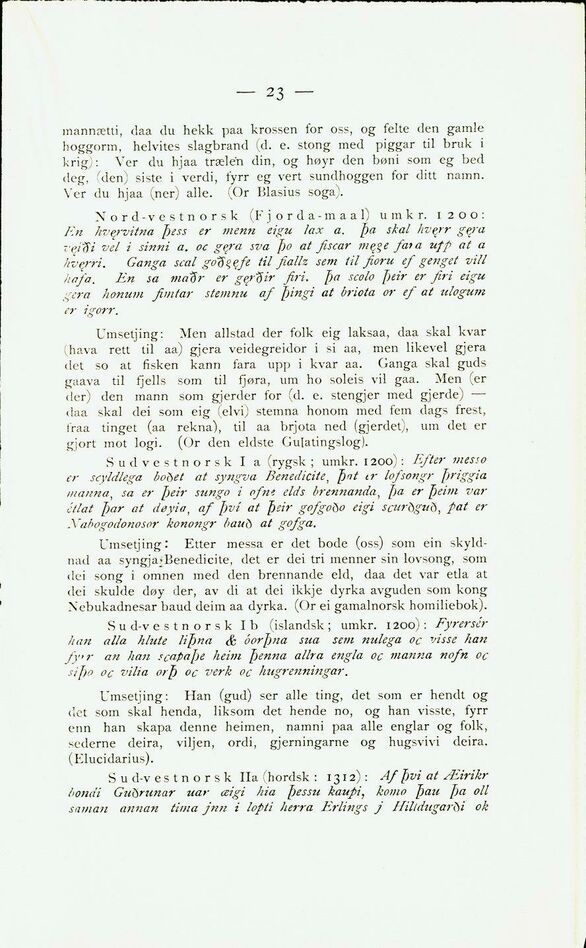 — 23 —
mannætti, daa du hekk paa krossen for oss, og felte den gamle
hoggorm, helvites slagbrand (d. e. stong med piggar til bruk i
krig): Ver du hjaa trælen din, og høyr den bøni som eg bed
deg, (den) siste i verdi, fyrr eg vert sundhoggen for ditt namn.
Ver du hjaa (ner) alle. (Or Blasius soga).
Nord-vestnorsk (Fjorda-maal) umkr. 1200:
En hvęrvitna þess er menn eigu lax a. þa skal hvęrr gęra
vęiði vel i sinni a. oc gęra sva þo at fiscar męge fara upp at a
hvęrri. Ganga scal goðsgęfe til fiallz sem til fioru ef genget vill
hafa. En sa maðr er gęrðir firi. þa scolo þeir er firi eigu
gera honum fimtar stemnu af þingi at briota or ef at ulogum
er igorr.
Umsetjing: Men allstad der folk eig laksaa, daa skal kvar
(hava rett til aa) gjera veidegreidor i si aa, men likevel gjera
det so at fisken kann fara upp i kvar aa. Ganga skal guds
gaava til fjells som til fjøra, um ho soleis vil gaa. Men (er
der) den mann som gjerder for (d. e. stengjer med gjerde) —
daa skal dei som eig (elvi) stemna honom med fem dags frest,
fraa tinget (aa rekna), til aa brjota ned (gjerdet), um det er
gjort mot logi. (Or den eldste Gulatingslog).
Sudvestnorsk I a (rygsk; umkr. 1200): Efter messo
er scyldlega boðet at syngva Benedicite, þat er lofsongr þriggia
manna, sa er þeir sungo i ofne elds brennanda, þa er þeim var
étlat þar at døyia, af þvi at þeir gofgoðo eigi scurðguð, þat er
Nabogodonosor konongr bauð at gofga.
Umsetjing: Etter messa er det bode (oss) som ein skyld-
nad aa syngja Benedicite, det er dei tri menner sin lovsong, som
dei song i omnen med den brennande eld, daa det var etla at
dei skulde døy der, av di at dei ikkje dyrka avguden som kong
Nebukadnesar baud deim aa dyrka. (Or ei gamalnorsk homiliebok).
Sud-vestnorsk I b (islandsk; umkr. 1200): Fyrersér
han alla hlute liþna & óorþna sua sem nulega oc visse han
fyrr an han scapaþe heim þenna allra engla oc manna nofn oc
siþo oc vilia orþ oc verk oc hugrenningar.
Umsetjing: Han (gud) ser alle ting, det som er hendt og
det som skal henda, liksom det hende no, og han visste, fyrr
enn han skapa denne heimen, namni paa alle englar og folk,
sederne deira, viljen, ordi, gjerningarne og hugsvivi deira.
(Elucidarius).
Sud-vestnorsk IIa (hordsk: 1312): Af þvi at Æirikr
bondi Guðrunar uar æigi hia þessu kaupi, komo þau þa oll
saman annan tima jnn i lopti herra Erlings j Hilldugarði ok